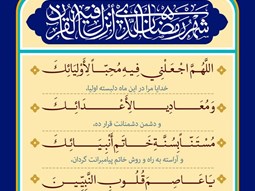 شهر رمضان الذی انزل فیه القرآن
اللَّهُمَّ اجْعَلْنِي فِيهِ مُحِبّاً لِأَوْلِيَائِكَ
خدایا مرا در این ماه دلبسته اولیاء
وَمُعَادِياً لِأَعْدَائِكَ
و دشمن دشمنانت قرار ده
مُسْتَنّاً بِسُنَّةِ خَاتَمِ أَنْبِيَائِكَ
و آراسته به راه و روش خاتم پیامبرانت گردان،
يَا عَاصِمَ قُلُوبِ النَّبِيِّينَ